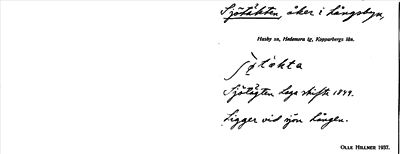 Sjötäkten, åker i Långsbyn,
Husby sn, Hedemora tg, Kopparbergs län.
Sjötäkta
Sjötägten Laga skifte 1849.
Ligger vid sjön Lången.
OLLE HILLNER 1937.